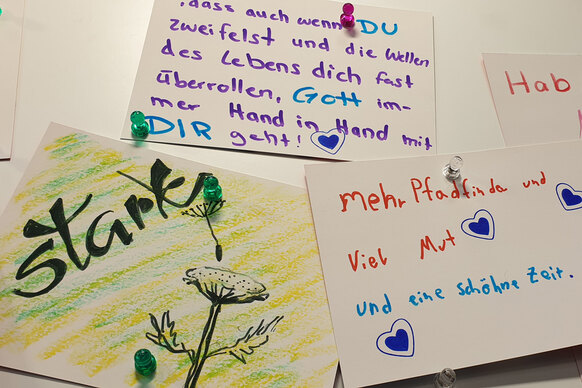 ,dass auch wenn DU
zweifelst und die Wellen
des Lebens dich fast
überrollen, Gott im-
mer Hand in Hand mit
DIR geht!
Hab
stark
mehr Pfadfinda und
Viel Mut
und eine schöhne Zeit.